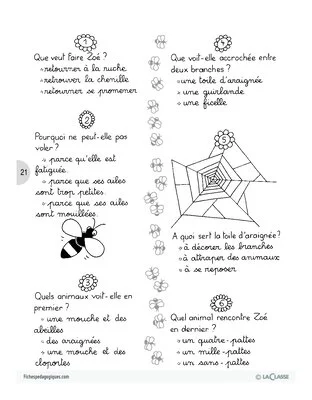 1
Que veut faire Zoé ?
retourner à la ruche
retrouver la chenille
retourner se promener
2
Pourquoi ne peut-elle pas
voler ?
parce qu'elle est
fatiguée.
parce que ses ailes
sont trop petites.
parce que ses ailes
sont mouillées.
21
3
Quels animaux voit-elle en
premier ?
une mouche et des
abeilles
des araignées
une mouche et des
cloportes
4
Que voit-elle accrochée entre
deux branches ?
une toile d'araignée
une guirlande
une ficelle
5
A quoi sert la toile d'araignée?
à décorer les branches
à attraper des animaux
à se reposer
6
Quel animal rencontre Zoé
en dernier ?
un quatre-pattes
un mille-pattes
un sans-pattes
Fichespedagogiques.com
© LACLASSE